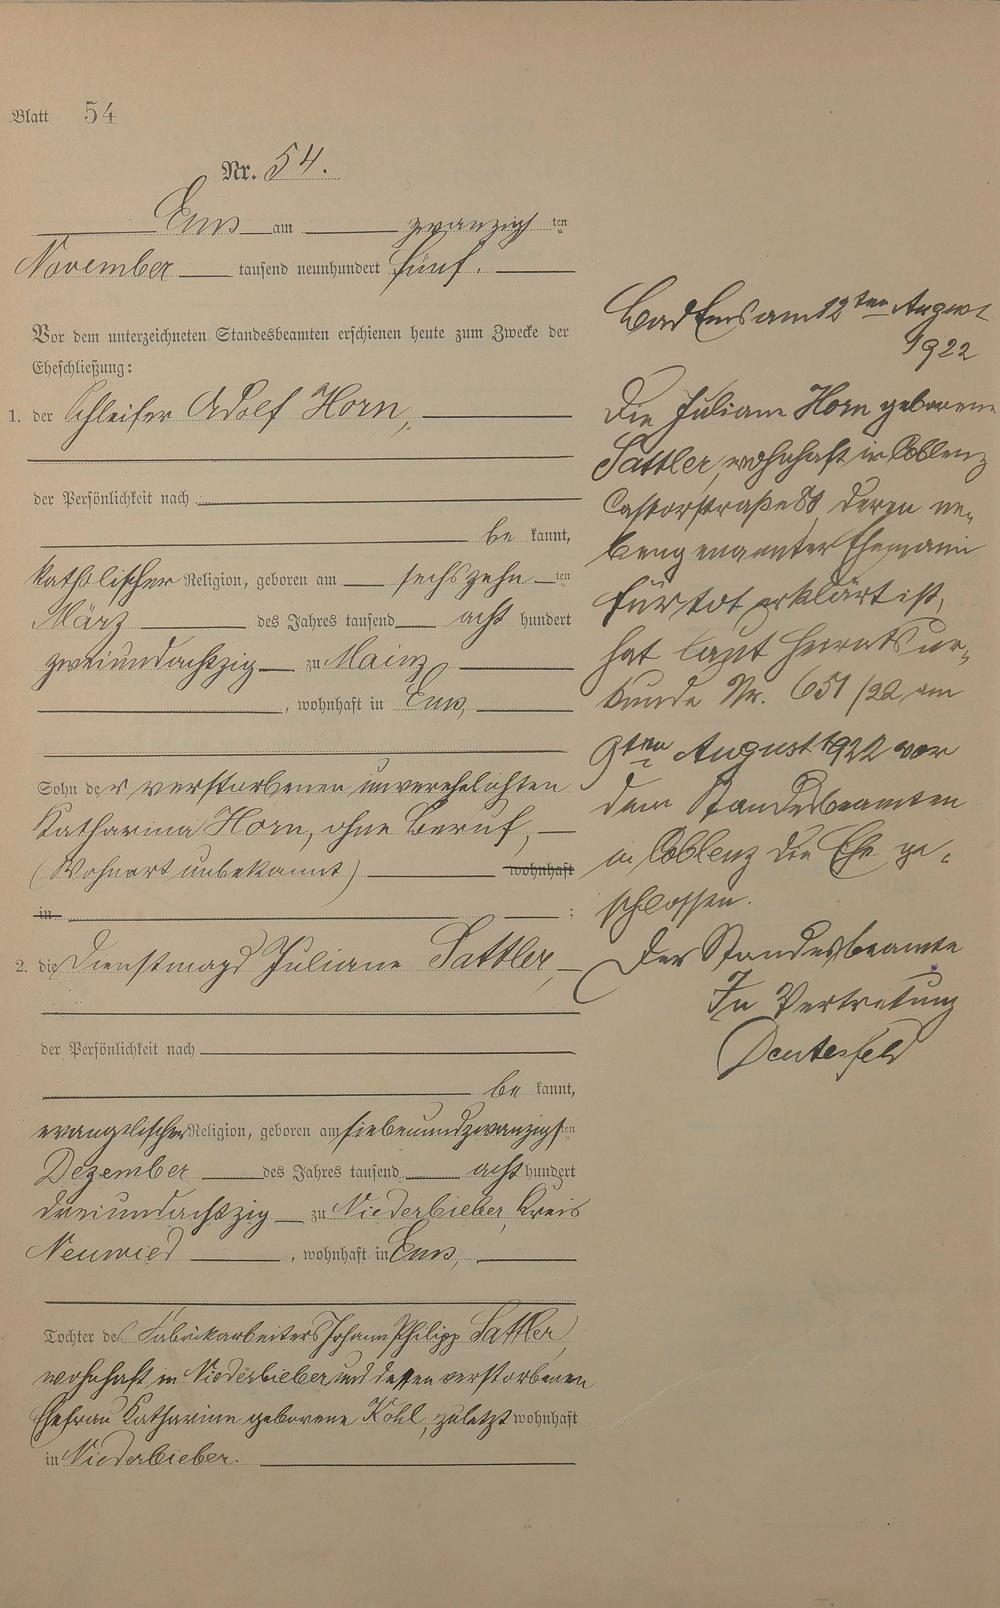 Blatt 54
Nr. 54.
Ems am zwanzigsten
November tausend neunhundert fünf.
Vor dem unterzeichneten Standesbeamten erschienen heute zum Zwecke der
Eheschließung:
1. der Schleifer Adolf Horn,
der Persönlichkeit nach
be kannt,
katholischer Religion, geboren am sechszehn ten
März des Jahres tausend acht hundert
zweiundachtzig zu Mainz,
, wohnhaft in Ems,
Sohn der verstorbenen unverehelichten
Katharina Horn, ohne Beruf,
(Wohnort unbekannt) wohnhaft
in ;
2. die Dienstmagd Juliane Sattler,
der Persönlichkeit nach
be kannt,
evangelischer Religion, geboren am siebenundzwanzigsten
Dezember des Jahres tausend acht hundert
dreiundachtzig zu Niederbieber, Kreis
Neuwied, wohnhaft in Ems,
Tochter des Fabrikarbeiters Johann Philipp Sattler,
wohnhaft in Niederbieber und dessen verstorbenen
Ehefrau Katharina geborene Kohl, zuletzt wohnhaft
in Niederbieber.
Bad Ems am 12ten August
1922
Die Juliane Horn geborene
Sattler, wohnhaft in Coblenz
Castorstraße 88, deren ne-
bengenannter Ehemann
für tot erklärt ist,
hat laut Heiratsur-
kunde Nr. 651/22 am
9ten August 1922 vor
dem Standesbeamten
in Coblenz die Ehe ge-
schlossen.
Der Standesbeamte
In Vertretung